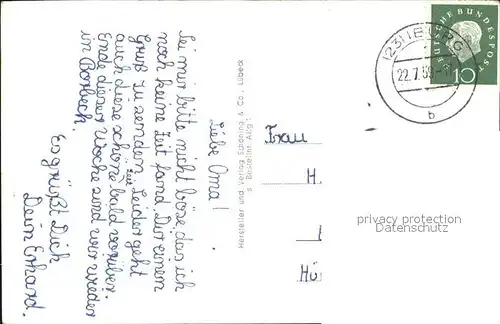 Liebe Oma!
Sei mir bitte nicht böse, das ich
noch keine Zeit fand, Dir einen
Gruß zu senden. Leider geht
auch diese schöne Zeit bald vorüber.
Ende dieser Woche sind wir wieder
in Borbeck.
Es grüßt Dich
Dein Erhard.
Hersteller und Verlag Schöning & Co., Lübeck
(23) IBURG
22.7.59
b
DEUTSCHE BUNDESPOST
10
Frau
H
Hü
privacy protection
Datenschutz